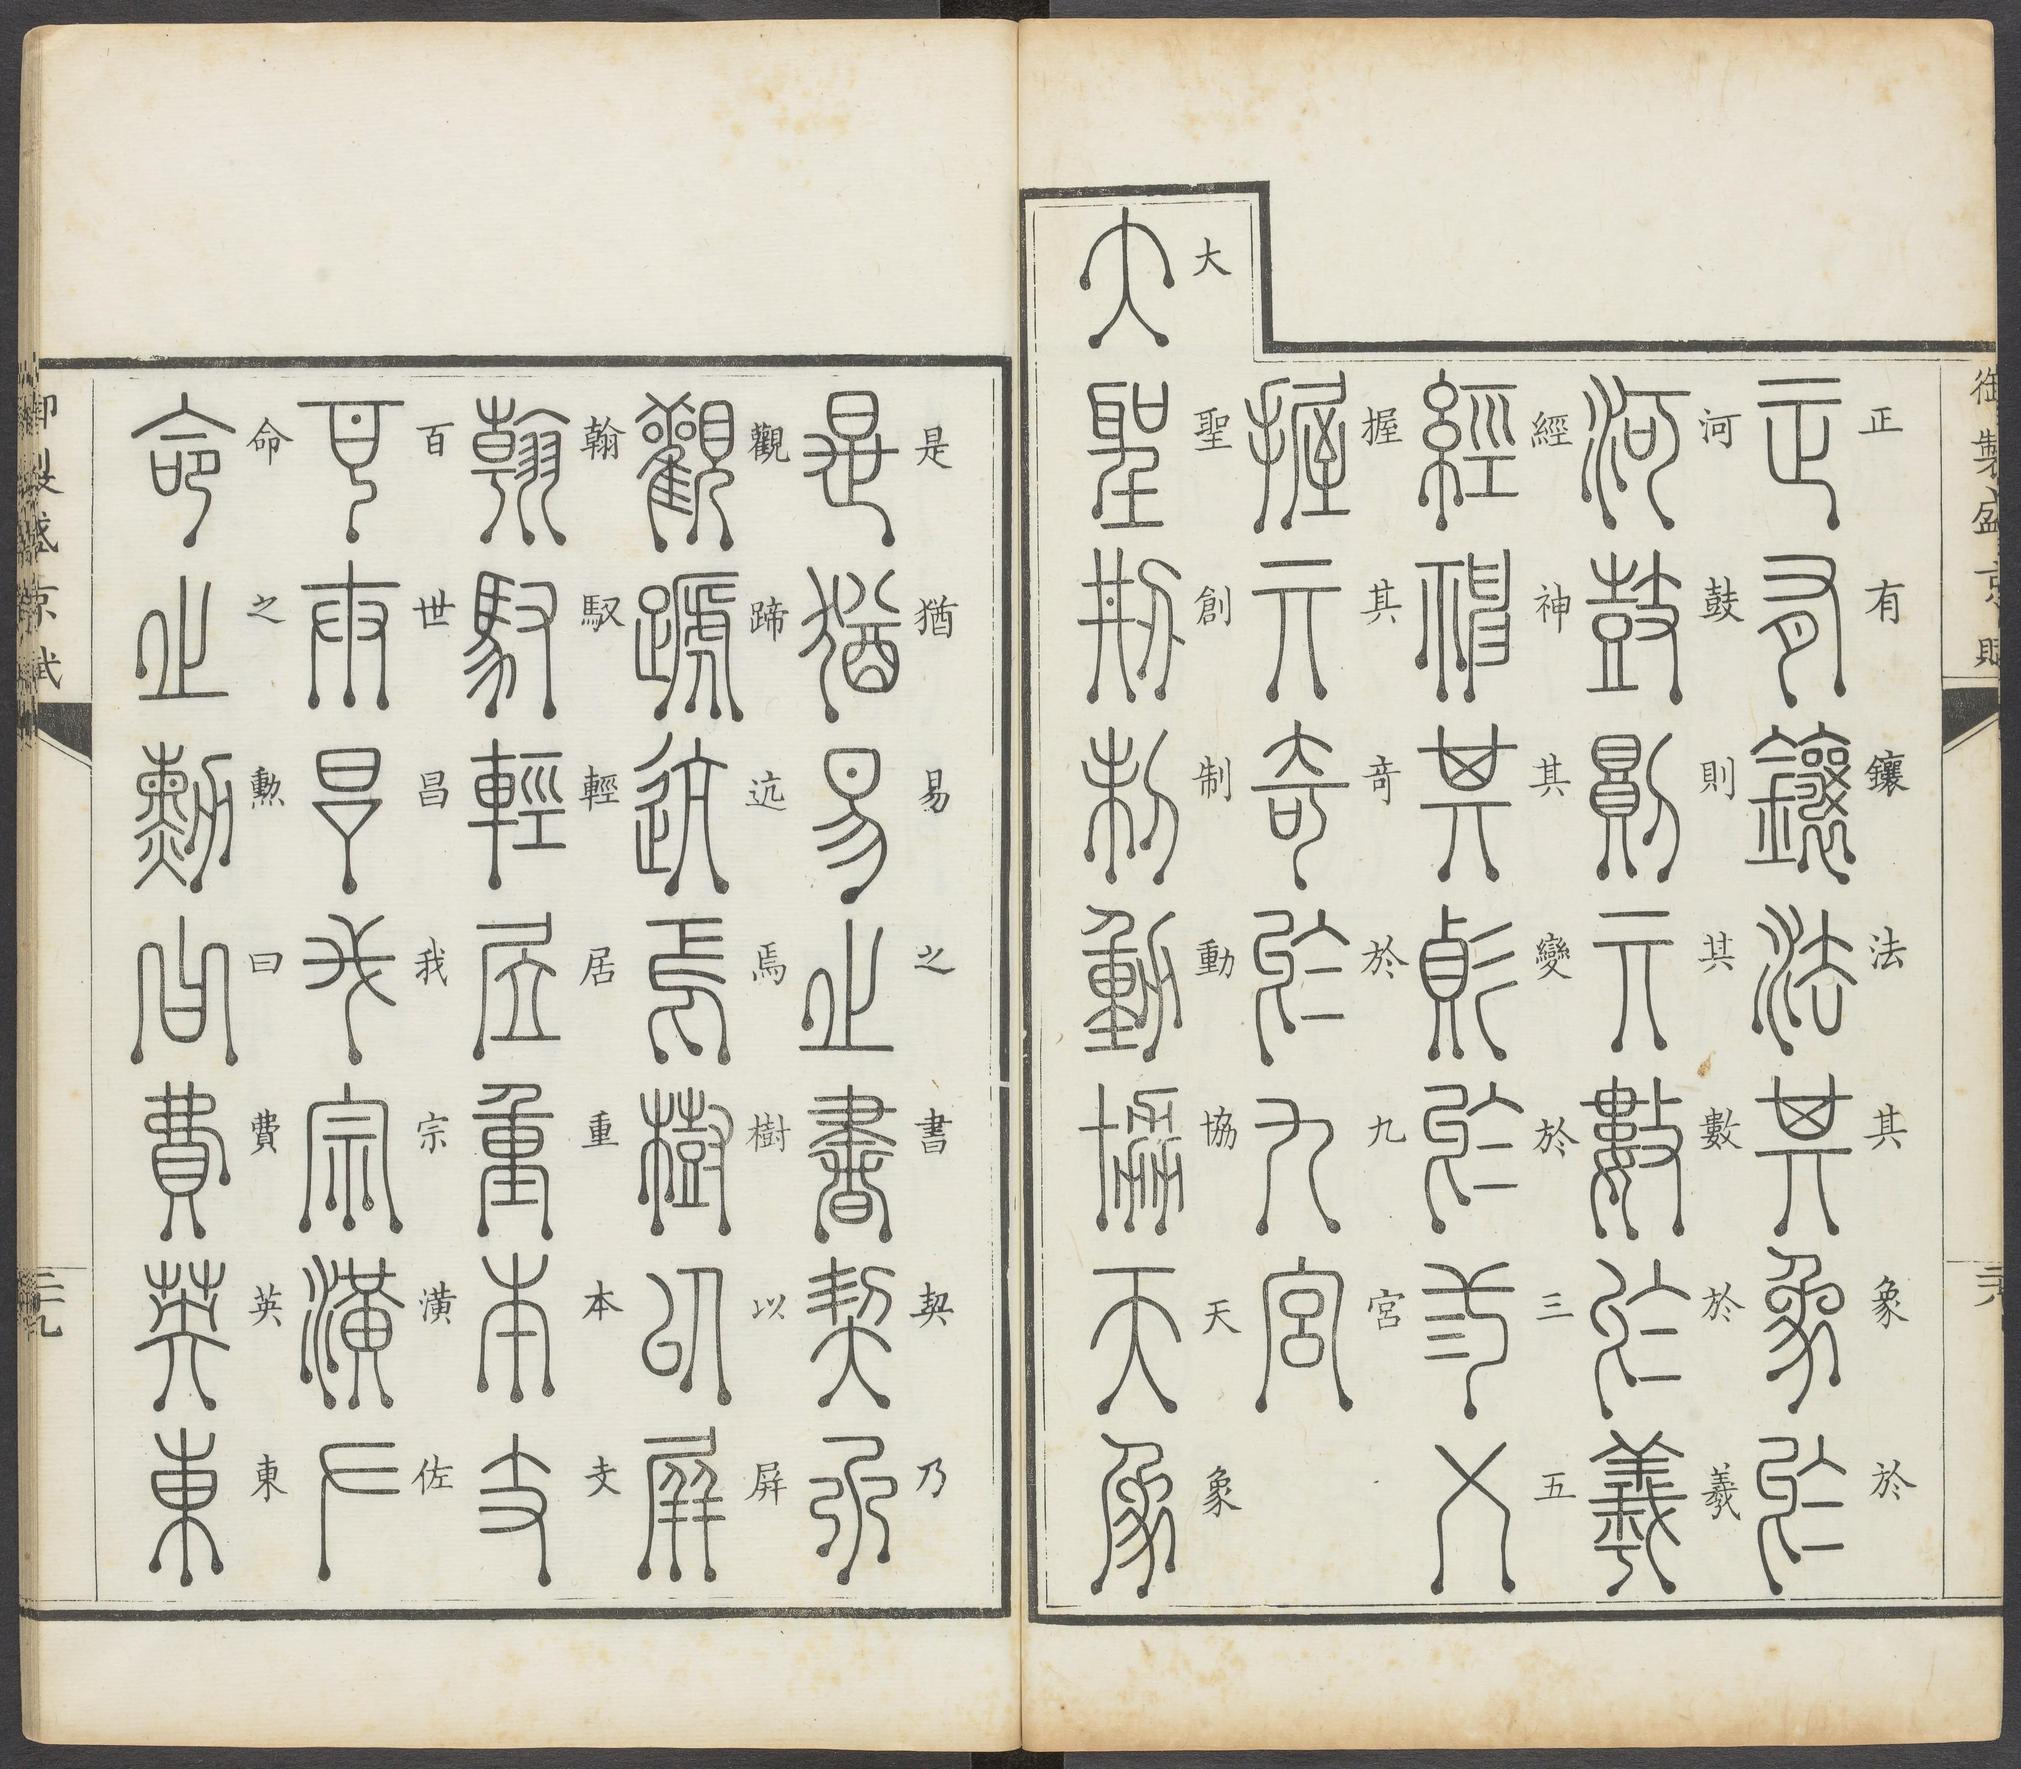 御製盛京賦 二八
正有鑲法其象於
河鼓則其數於羲
經神其變於三五
握其奇於九宮
大聖創制動協天象
是猶易之書契乃
觀蹄迒焉樹以屏
翰馭輕居重本支
百世昌我宗潢佐
命之勲曰費英東
御製盛京賦 二九